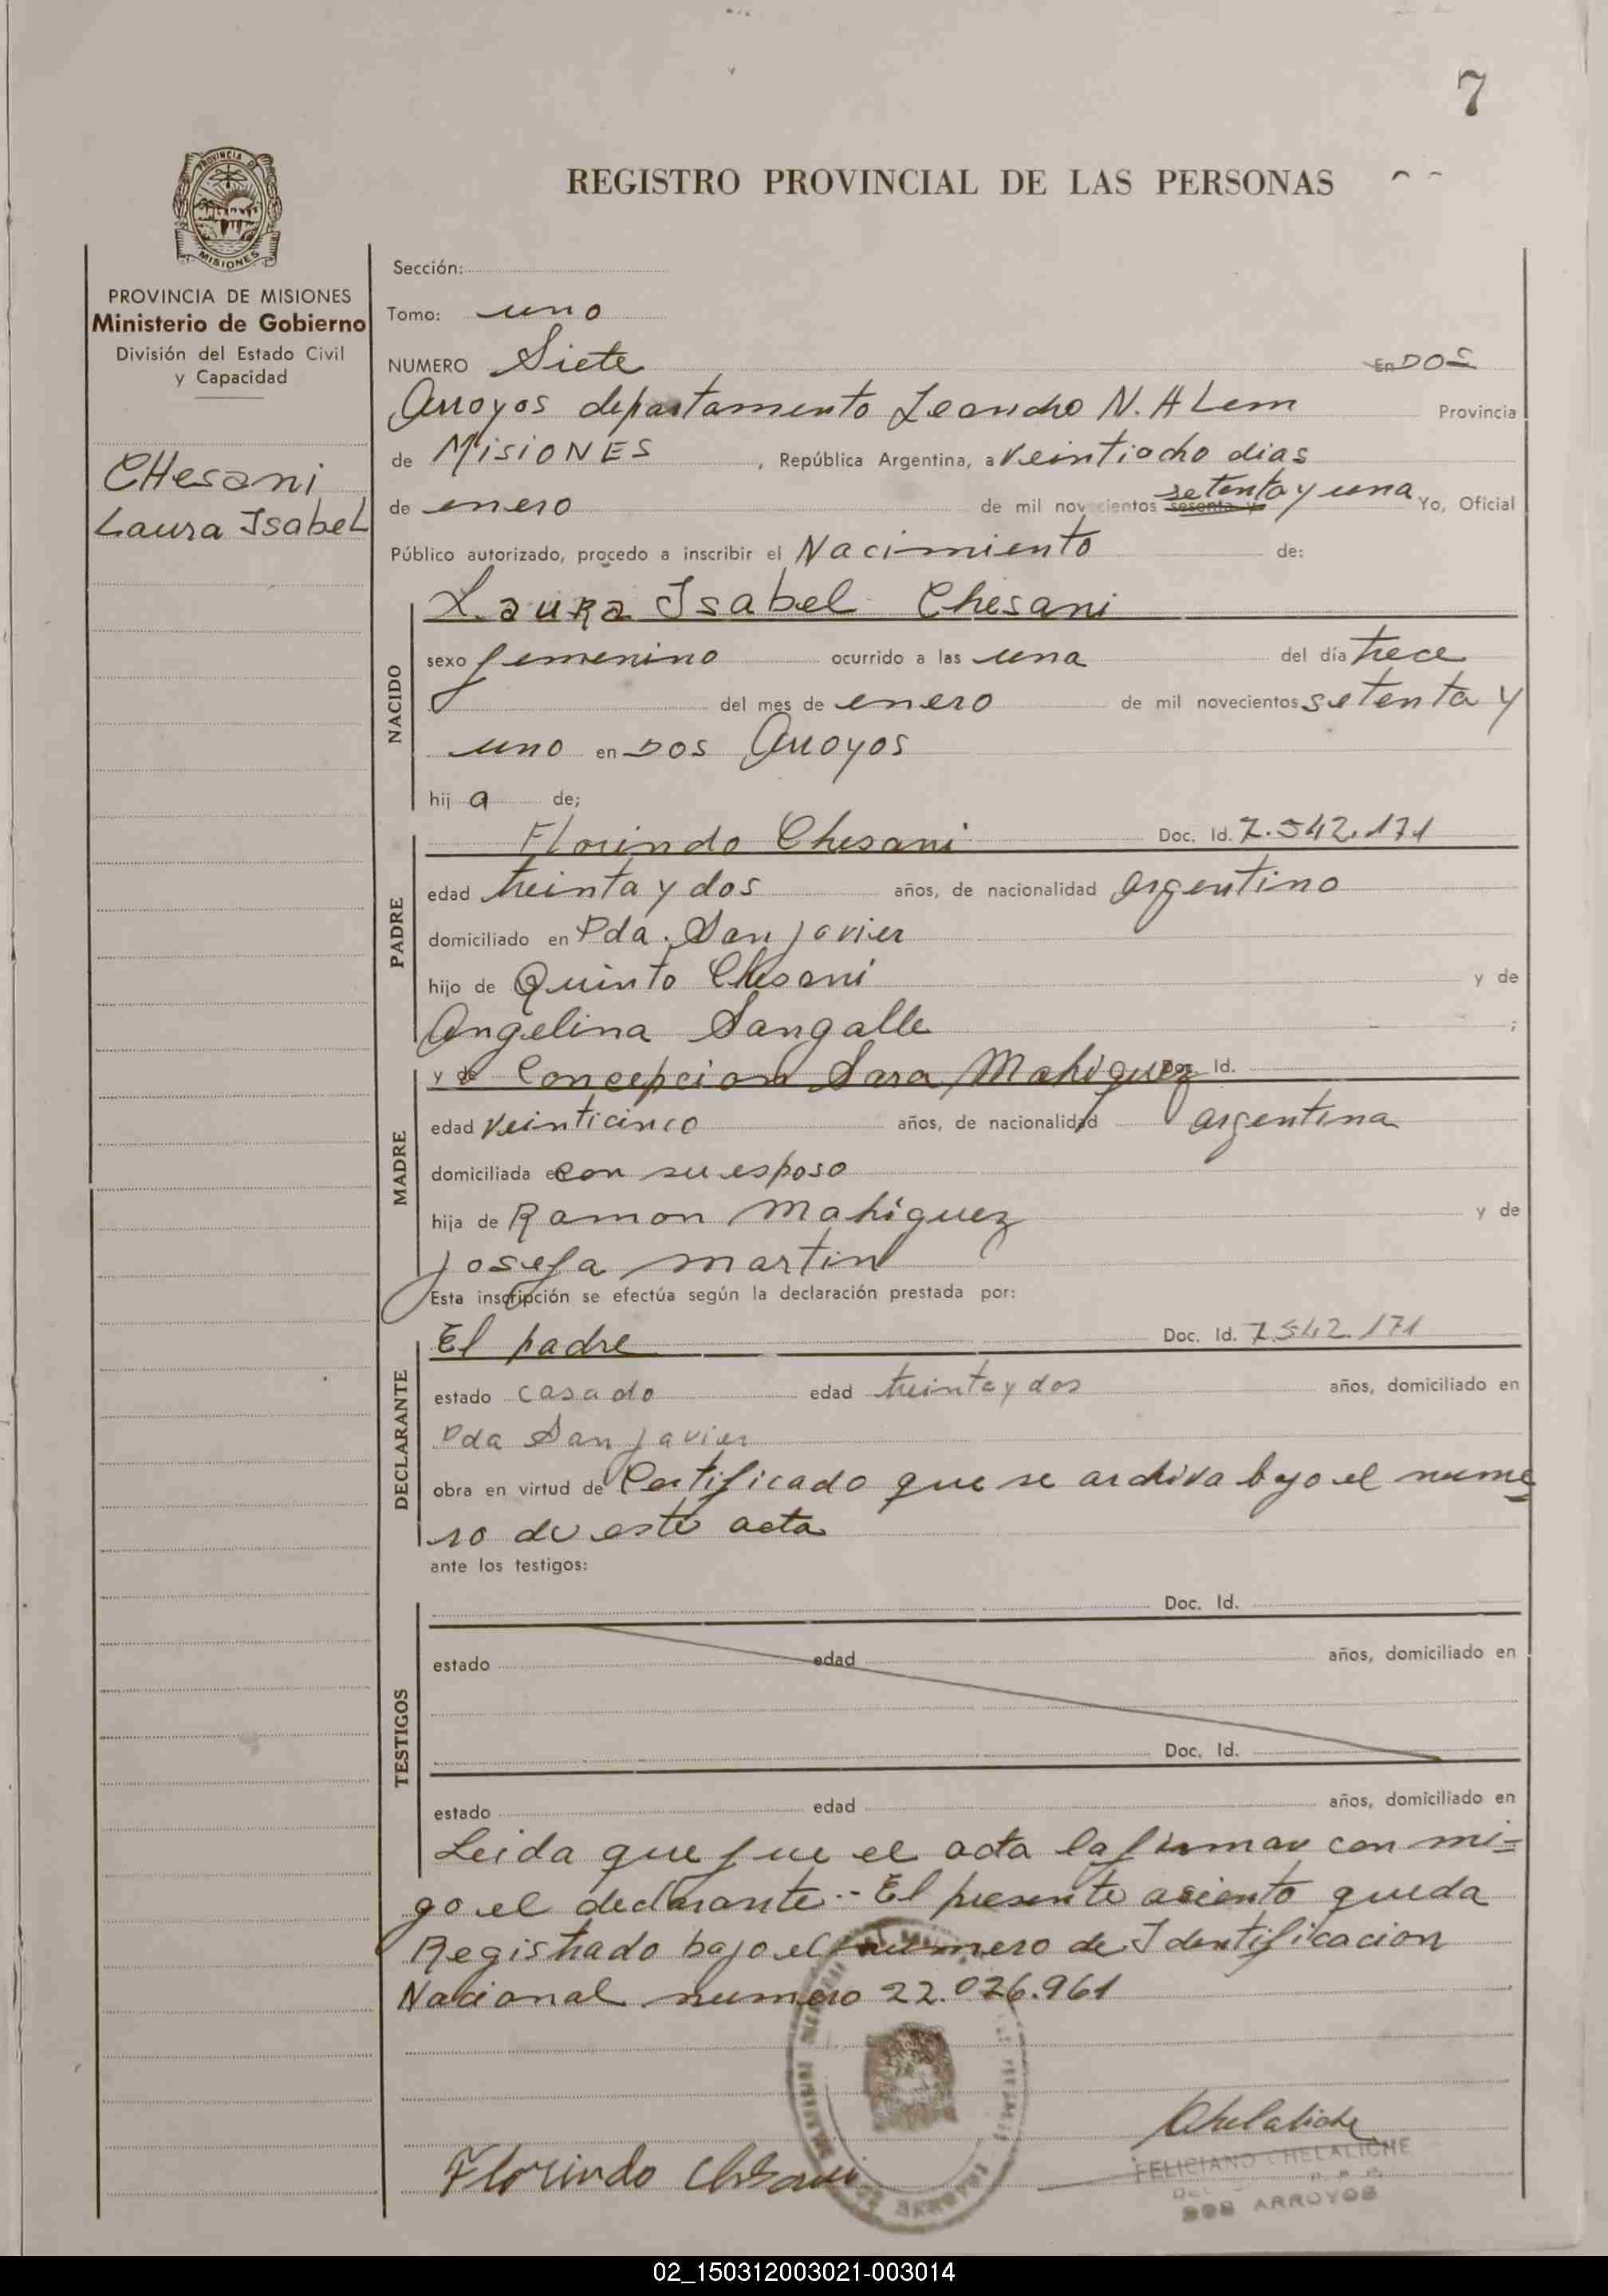 7
REGISTRO PROVINCIAL DE LAS PERSONAS
PROVINCIA DE
MISIONES
PROVINCIA DE MISIONES
Ministerio de Gobierno
División del Estado Civil
y Capacidad
CHesani
Laura Isabel
Sección:
Tomo: uno
NUMERO Siete En DOS
Arroyos departamento Leandro N. ALem Provincia
de MISIONES, República Argentina, a veintiocho dias
de enero de mil novecientos sesenta y setenta y una Yo, Oficial
Público autorizado, procedo a inscribir el Nacimiento de:
NACIDO
Laura Isabel Chesani
sexo femenino ocurrido a las una del día trece
del mes de enero de mil novecientos setenta y
uno en DOS Arroyos
hij a de;
PADRE
Florindo Chesani Doc. Id. 7.542.171
edad treinta y dos años, de nacionalidad argentino
domiciliado en Pda. San javier
hijo de Quinto Chesani y de
Angelina Sangalle ;
MADRE
y de Concepcion Sara Mahiquez Doc. Id.
edad veinticinco años, de nacionalidad argentina
domiciliada en con su esposo
hija de Ramon Mahiquez y de
josefa martin
Esta inscripción se efectúa según la declaración prestada por:
DECLARANTE
El padre Doc. Id. 7.542.171
estado casado edad treinta y dos años, domiciliado en
Pda San javier
obra en virtud de Certificado que se archiva bajo el nume
ro de este acta
ante los testigos:
TESTIGOS
Doc. Id.
estado edad años, domiciliado en
Doc. Id.
estado edad años, domiciliado en
Leida que fue el acta la firman con mi=
go el declarante.- El presente asiento queda
Registrado bajo el numero de Identificacion
Nacional numero 22.026.961
Florindo Chesani
Chelaliche
FELICIANO CHELALICHE
DOS ARROYOS
02_150312003021-003014